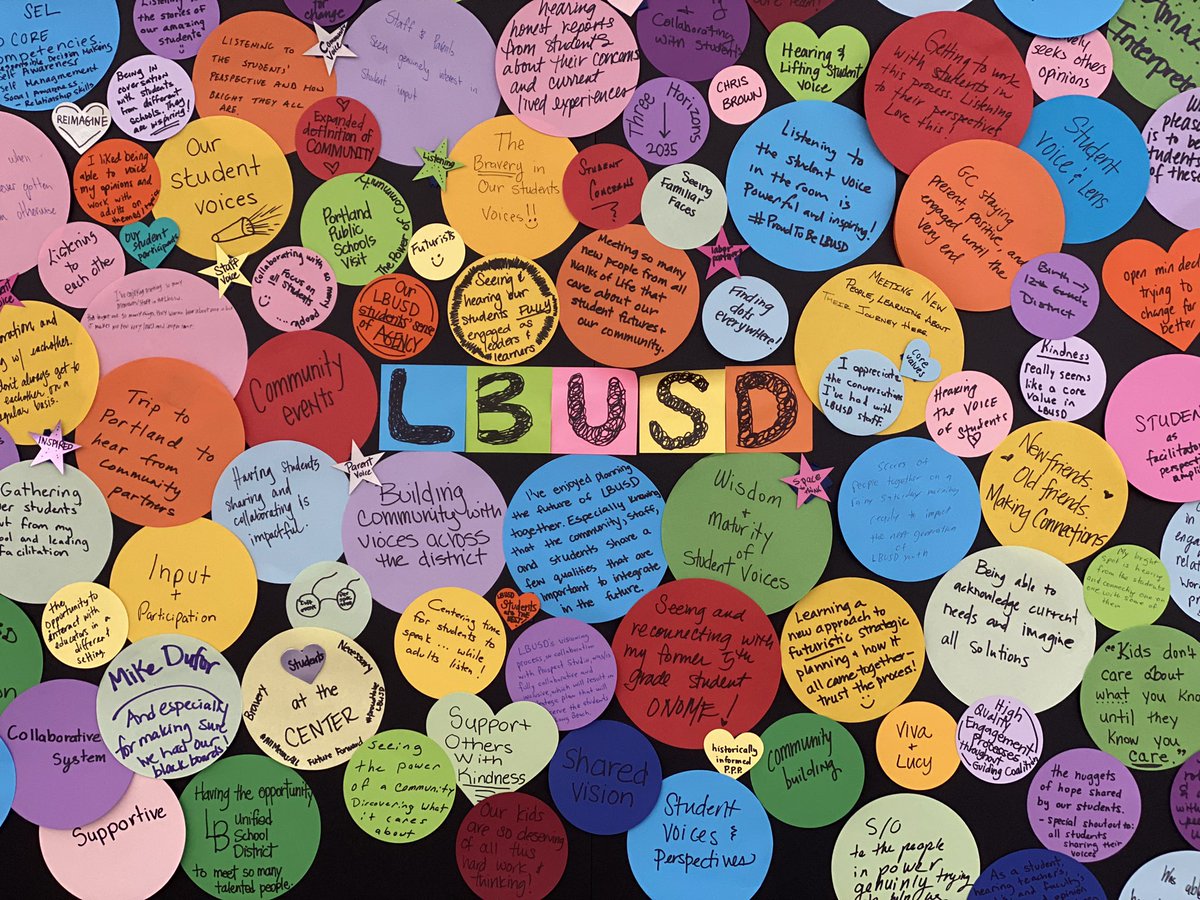 SEL
CORE
Competencies.
Responsible Decision Making
Self Awareness
Self Management
Social Awareness
Relationship Skills
Listening to
the stories of
our amazing
students
REIMAGINE
Being in
conversation
with students
from different
schools. They
are inspiring!
LISTENING TO
THE STUDENTS'
PERSPECTIVE AND HOW
BRIGHT THEY ALL
ARE.
for change
Community
Voice
Staff & Panels
Seem genuinely interest
in
Student input
Expanded
definition of
COMMUNITY
hearing
honest reports
from students
about their concerns
and current
lived experiences
Collaborating
with students
Three Horizons
2035
CHRIS
BROWN
Hearing &
Lifting Student
Voice
Getting to work
with students in
this process. Listening
to their perspective!
Love this!
seeks others
opinions
Amazing
Interpreters
I liked being
able to voice
my opinions and
work with
adults on
Our
student
voices
Our
student
participants
Listening
to
each other
Staff
Voice
Collaborating with so
Focus on
Students
Portland
Public
Schools
Visit
The Power of Community
Listening
The
Bravery in
Our Students
Voices!!
STUDENT
CONCERNS
Seeing
Familiar
Faces
Futurists
Our
LBUSD
students' sense
of AGENCY
Seeing &
hearing our
students Fully
engaged as
leaders &
learners
Meeting so many
new people from all
Walks of Life that
care about our
student futures &
our community.
labor
partners
Listening to
the student voice
in the room is
Powerful and inspiring!
#ProudToBeLBUSD
Finding
dots
everywhere!
Student
Voice & Lens
GC staying
present, positive, and
engaged until the
very end
MEETING NEW
PEOPLE, LEARNING ABOUT
THEIR JOURNEY HERE
I appreciate
the conversations
I've had with
LBUSD staff.
Core
Values
Birth →
12th Grade
District
Kindness
really seems
like a core
value in
LBUSD
open minded
trying to
change for
better
Hearing
the VOICE
of students
LBUSD
Community
events
Trip to
Portland to
hear from
community
partners
INSPIRED
Having students
sharing and
collaborating is
impactful.
Parent
Voice
Building
Community with
voices across
the district
I've enjoyed planning
the future of LBUSD
together. Especially knowing
that the community, Staff,
and students share a
few qualities that are
important to integrate
in the future.
Wisdom
+
maturity
of
Student Voices
space to
think
people together on a
rainy Saturday morning
ready to impact
the next generation
of
LBUSD youth
New friends.
Old friends.
Making Connections
STUDENTS
as
facilitators
Input
+
Participation
the
opportunity to
interact with
educators in a
different
setting.
Mike Dufor
And especially
for making sure
we had our
black boards
Students
at the
CENTER
Bravery
Necessary
Future Forward
Centering time
for students to
speak ... while
adults listen!
Support
Others
With
Kindness
Seeing
the power
of a community
Discovering what
it cares
about
Seeing and
reconnecting with
my former 5th
grade student
ONOME!
Learning a
new approach to
futuristic strategic
planning & how it
all came together -
trust the process!
Being able to
acknowledge current
needs and imagine
all solutions
"Kids don't
care about
what you know
until they
Know you
care."
Collaborative
System
Supportive
Having the opportunity
LB Unified
School
District
to meet so many
talented people.
Our kids
are so deserving
of all this
hard work &
thinking!
Shared
vision
historically
informed
P.P.P.
Community
building
Student
Voices &
Perspectives
Viva
+
Lucy
High
Quality
Engagement
processes
throughout
Guiding Coalition
the nuggets
of hope shared
by our students.
- special shoutout to
all students
sharing their
voices
S/O
to the people
in power
genuinly trying
As a student,
hearing teachers,